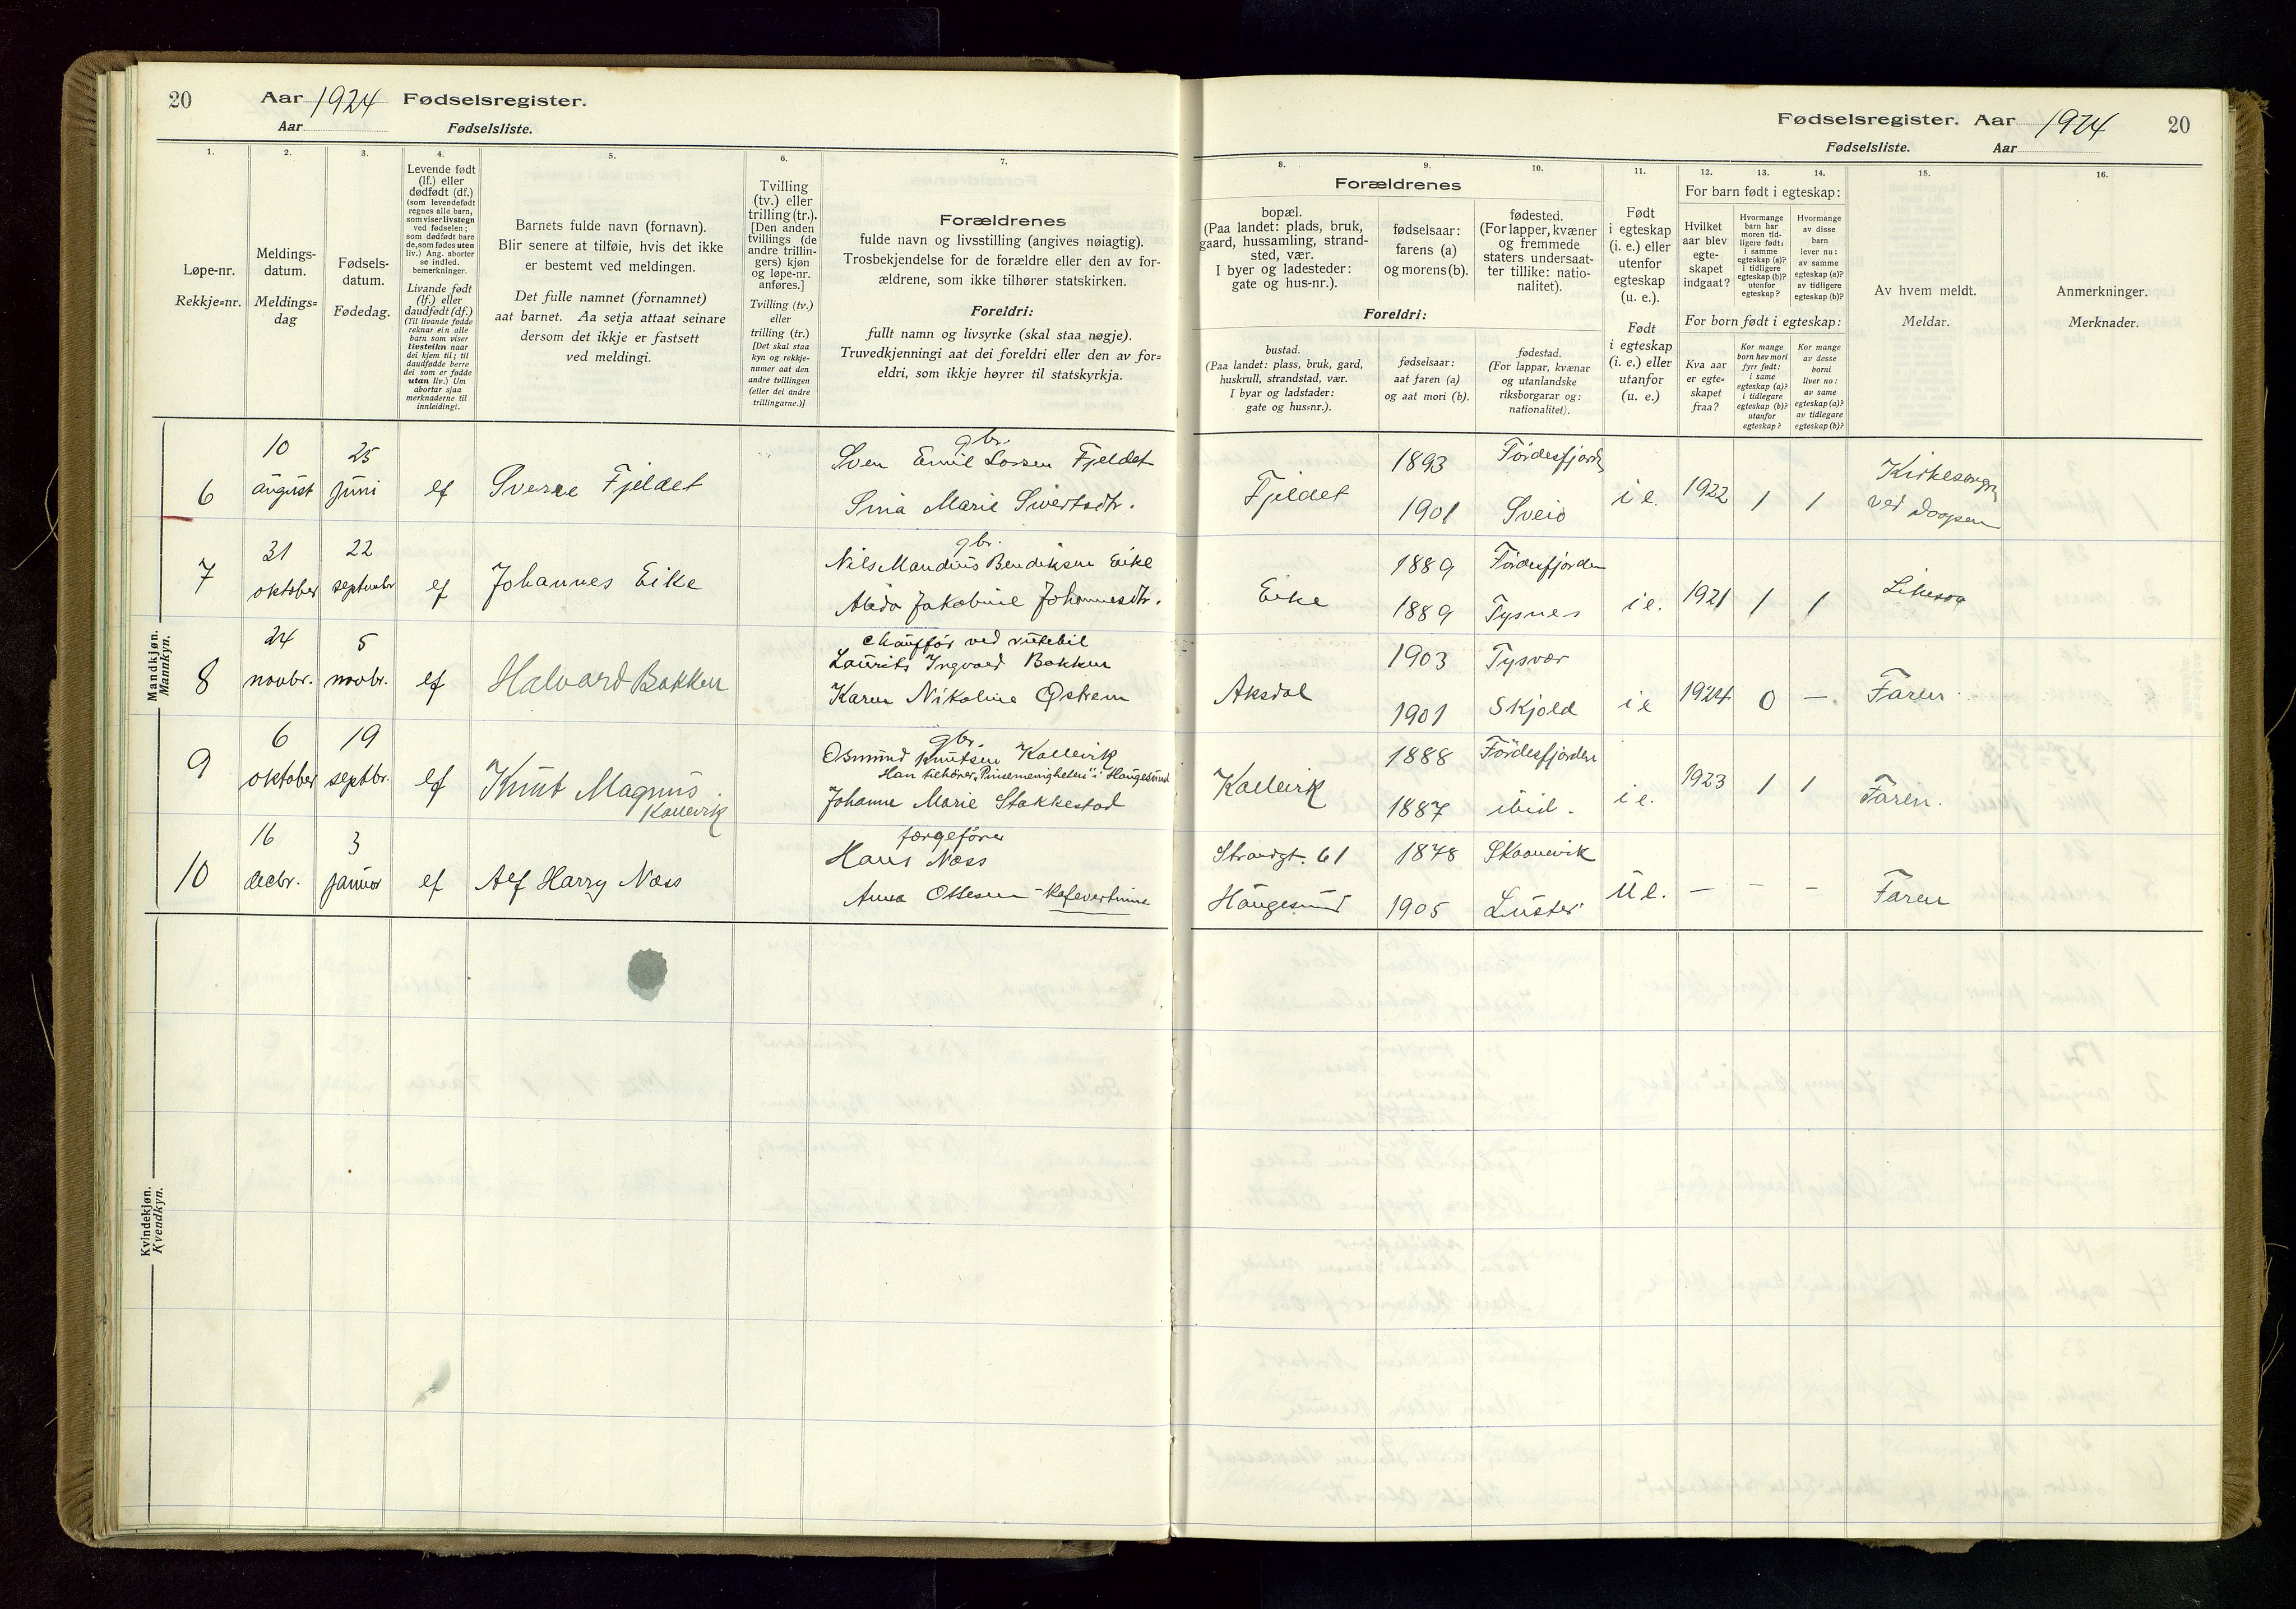 20 Aar 1924 Fødselsregister.
Aar Fødselsliste.
Fødselsregister. Aar 1924 20
Fødselsliste. Aar
1. 2. 3. 4. 5. 6. 7.
Løpe-nr.
Rekkje=nr.
Meldings-
datum.
Meldings=
dag
Fødsels-
datum.
Fødedag.
Levende født
(lf.) eller
dødfødt (df.)
(som levendefødt
regnes alle barn,
som viser livstegn
ved fødselen;
som dødfødt bare
de, som fødes uten
liv.) Ang. aborter
se indled.
bemerkninger.
Livande født
(lf.) eller
daudfødt (df.)
(Til livande fødde
reknar ein alle
barn som viser
livsteikn naar
dei kjem til; til
daudfødde berre
dei som er fødde
utan liv.) Um
abortar sjaa
merknaderne til
innleidingi.
Barnets fulde navn (fornavn).
Blir senere at tilføie, hvis det ikke
er bestemt ved meldingen.
Det fulle namnet (fornamnet)
aat barnet. Aa setja attaat seinare
dersom det ikkje er fastsett
ved meldingi.
Tvilling
(tv.) eller
trilling (tr.).
[Den anden
tvillings (de
andre trillin-
gers) kjøn
og løpe-nr.
anføres.]
Tvilling (tv.)
eller
trilling (tr.)
[Det skal staa
kyn og rekkje-
numer aat den
andre tvillingen
(eller dei andre
trillingarne.)]
Forældrenes
fulde navn og livsstilling (angives nøiagtig).
Trosbekjendelse for de forældre eller den av for-
ældrene, som ikke tilhører statskirken.
Foreldri:
fullt namn og livsyrke (skal staa nøgje).
Truvedkjenningi aat dei foreldri eller den av for=
eldri, som ikkje høyrer til statskyrkja.
8. 9. 10. 11. 12. 13. 14. 15. 16.
Forældrenes
bopæl.
(Paa landet: plads, bruk,
gaard, hussamling, strand-
sted, vær.
I byer og ladesteder:
gate og hus-nr.).
fødselsaar:
farens (a)
og morens (b).
fødested.
(For lapper, kvæner
og fremmede
staters undersaat-
ter tillike: natio-
nalitet).
Foreldri:
bustad.
(Paa landet: plass, bruk, gard,
huskrull, strandstad, vær.
I byar og ladstader:
gate og hus=nr.).
fødselsaar:
aat faren (a)
og aat mori (b).
fødestad.
(For lappar, kvænar
og utanlandske
riksborgarar og:
nationalitet).
Født
i egteskap
(i. e.) eller
utenfor
egteskap
(u. e.).
Født
i egteskap
(i. e.) eller
utanfor
(u. e.)
For barn født i egteskap:
Hvilket
aar blev
egte-
skapet
indgaat?
Hvormange
barn har
moren tid-
ligere født:
i samme
egteskap (a)?
i tidligere
egteskap (b)?
utenfor
egteskap?
Hvormange
av disse
barn
lever nu:
av samme
egteskap (a)?
av tidligere
egteskap (b)?
For born født i egteskap:
Kva aar
er egte=
skapet
fraa?
Kor mange
born hev mori
fyrr født:
i same
egteskap (a)?
i tidlegare
egteskap (b)?
utanfor
egteskap?
Kor mange
av desse
borni
liver no:
av same
egteskap (a)?
av tidlegare
egteskap (b)?
Av hvem meldt.
Meldar.
Anmerkninger.
Merknader.
Mandkjøn.
Mannkyn.
6 10 august 25 juni lf Sverre Fjeldet
gbr.
Sven Emil Larsen Fjeldet
Sina Marie Sivertsdtr.
Fjeldet 1893 Førdesfjorden
1901 Sveio
i e. 1922 1 1
Kirkesangen
ved daapen
7 31 oktober 22 septembr lf Johannes Eike
gbr.
Nils Mandius Bendiksen Eike
Alida Jakobine Johannesdtr.
Eike 1889 Førdesfjorden
1889 Tysnes
i e. 1921 1 1
8 24 novbr. 5 novbr. lf Halvard Bakken
chauffør ved rutebil
Laurits Ingvald Bakken
Karen Nikoline Østrem
Aksdal 1903 Tysvær
1901 Skjold
i e 1924 0 — Faren
9 6 oktober 19 septbr. lf Knut Magnus
Kallevik
gbr.
Osmund Knutsen Kallevik
Han tilhører „Pinsemenigheten" i Haugesund
Johanne Marie Stakkestad
Kallevik 1888 Førdesfjorden
1887 ibid.
i e. 1923 1 1 Faren.
10 16 decbr. 3 januar lf Alf Harry Næss
færgefører
Hans Næss
Anna Ottesen – kafevertinne
Strandgt. 61 1878 Skaanevik
Haugesund 1905 Luster
U e. — — — Faren
Kvindekjøn.
Kvendkyn.